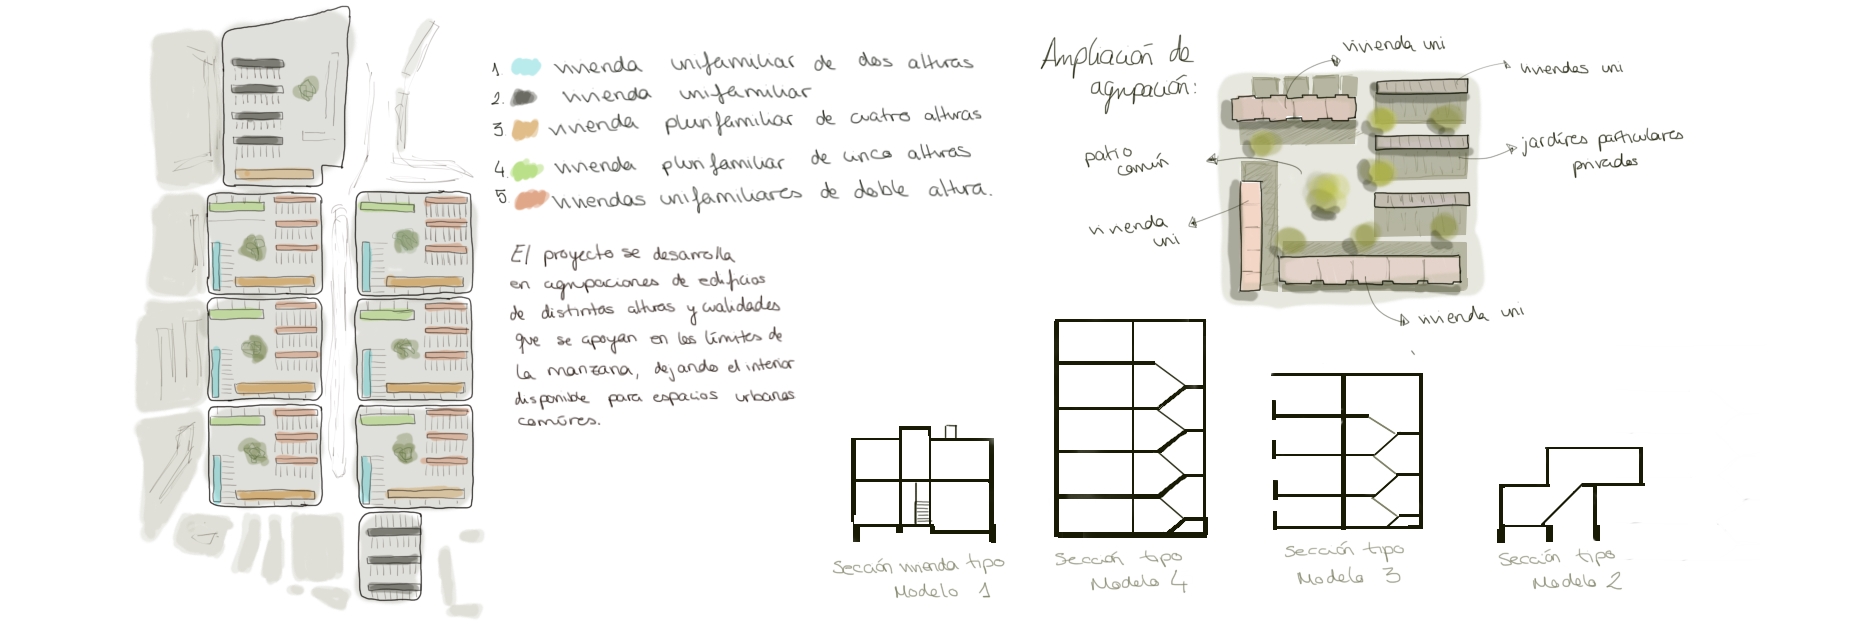 1. vivienda unifamiliar de dos alturas
2. vivienda unifamiliar
3. vivienda plurifamiliar de cuatro alturas
4. vivienda plurifamiliar de cinco alturas
5 viviendas unifamiliares de doble altura.
El proyecto se desarrolla
en agrupaciones de edificios
de distintas alturas y cualidades
que se apoyan en los límites de
la manzana, dejando el interior
disponible para espacios urbanos
comúnes.
Ampliación de
agrupación:
vivienda uni
viviendas uni
jardines particulares
privados
patio
común
vivienda
uni
vivienda uni
Sección vivienda tipo
Modelo 1
Sección tipo
Modelo 4
Sección tipo
Modelo 3
Sección tipo
Modelo 2